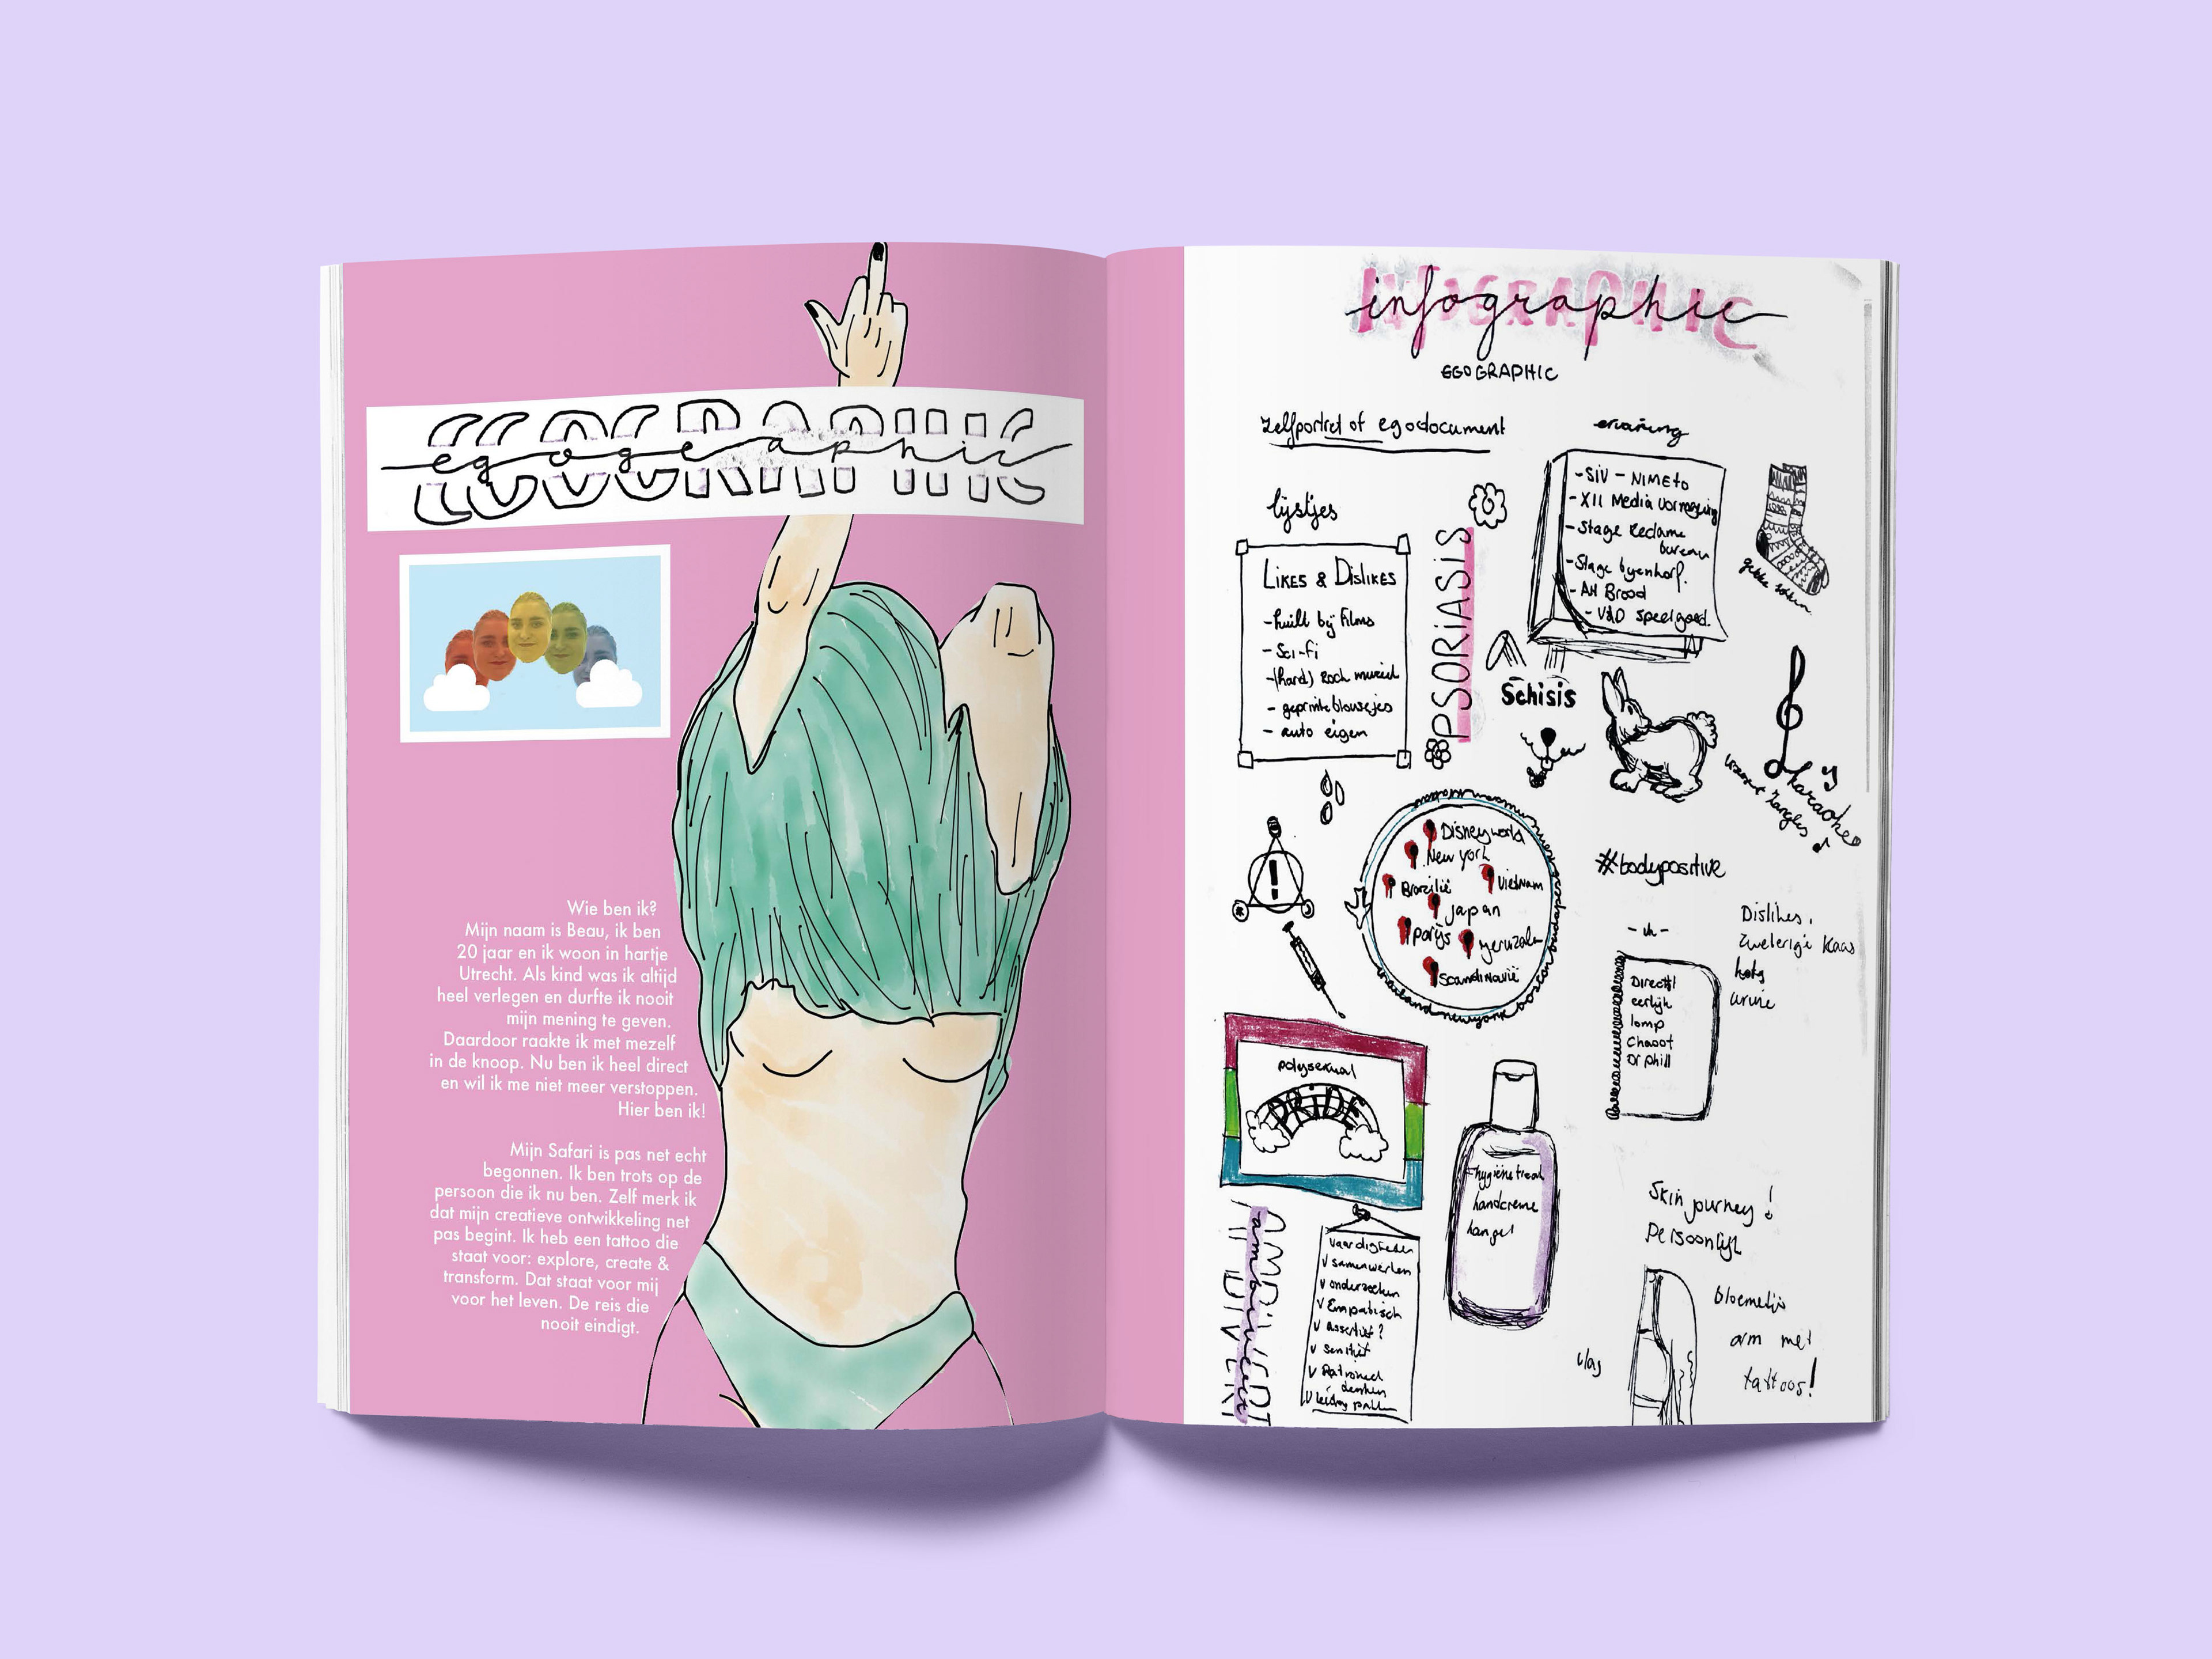 EGOGRAPHIC
egographic
Wie ben ik?
Mijn naam is Beau, ik ben
20 jaar en ik woon in hartje
Utrecht. Als kind was ik altijd
heel verlegen en durfte ik nooit
mijn mening te geven.
Daardoor raakte ik met mezelf
in de knoop. Nu ben ik heel direct
en wil ik me niet meer verstoppen.
Hier ben ik!
Mijn Safari is pas net echt
begonnen. Ik ben trots op de
persoon die ik nu ben. Zelf merk ik
dat mijn creatieve ontwikkeling net
pas begint. Ik heb een tattoo die
staat voor: explore, create &
transform. Dat staat voor mij
voor het leven. De reis die
nooit eindigt.
INFOGRAPHIC
infographic
EGOGRAPHIC
zelfportret of egodocument
ervaring
lijstjes
LIKES & DISLIKES
- huilt bij films
- Sci-fi
- (hard) rock muziek
- geprinte blousejes
- auto eigen
PSORIASIS
- SIV - NIMETO
- XII Media vormgeving
- Stage Reclame
bureau
- Stage byenhorf.
- AH Brood
- V&D speelgoed.
gekke sokken
Schisis
karaoke
Disneyworld
New york
Brazilië
Vietnam
Japan
parijs
Jeruzalem
Scandinavië
#bodypositive
- ik -
Direct!
eerlijk
lomp
Chaoot
Dr phill
Dislikes,
Kaas
urine
polysexual
PRIDE
handcreme
Skin journey!
Persoonlijk
AMBIVERT
ambivert
vaardigheden
v samenwerken
v onderzoeken
v Empatisch
v assertief?
v sensitief
denken
bloemetjes
arm met
tattoos!
vlag